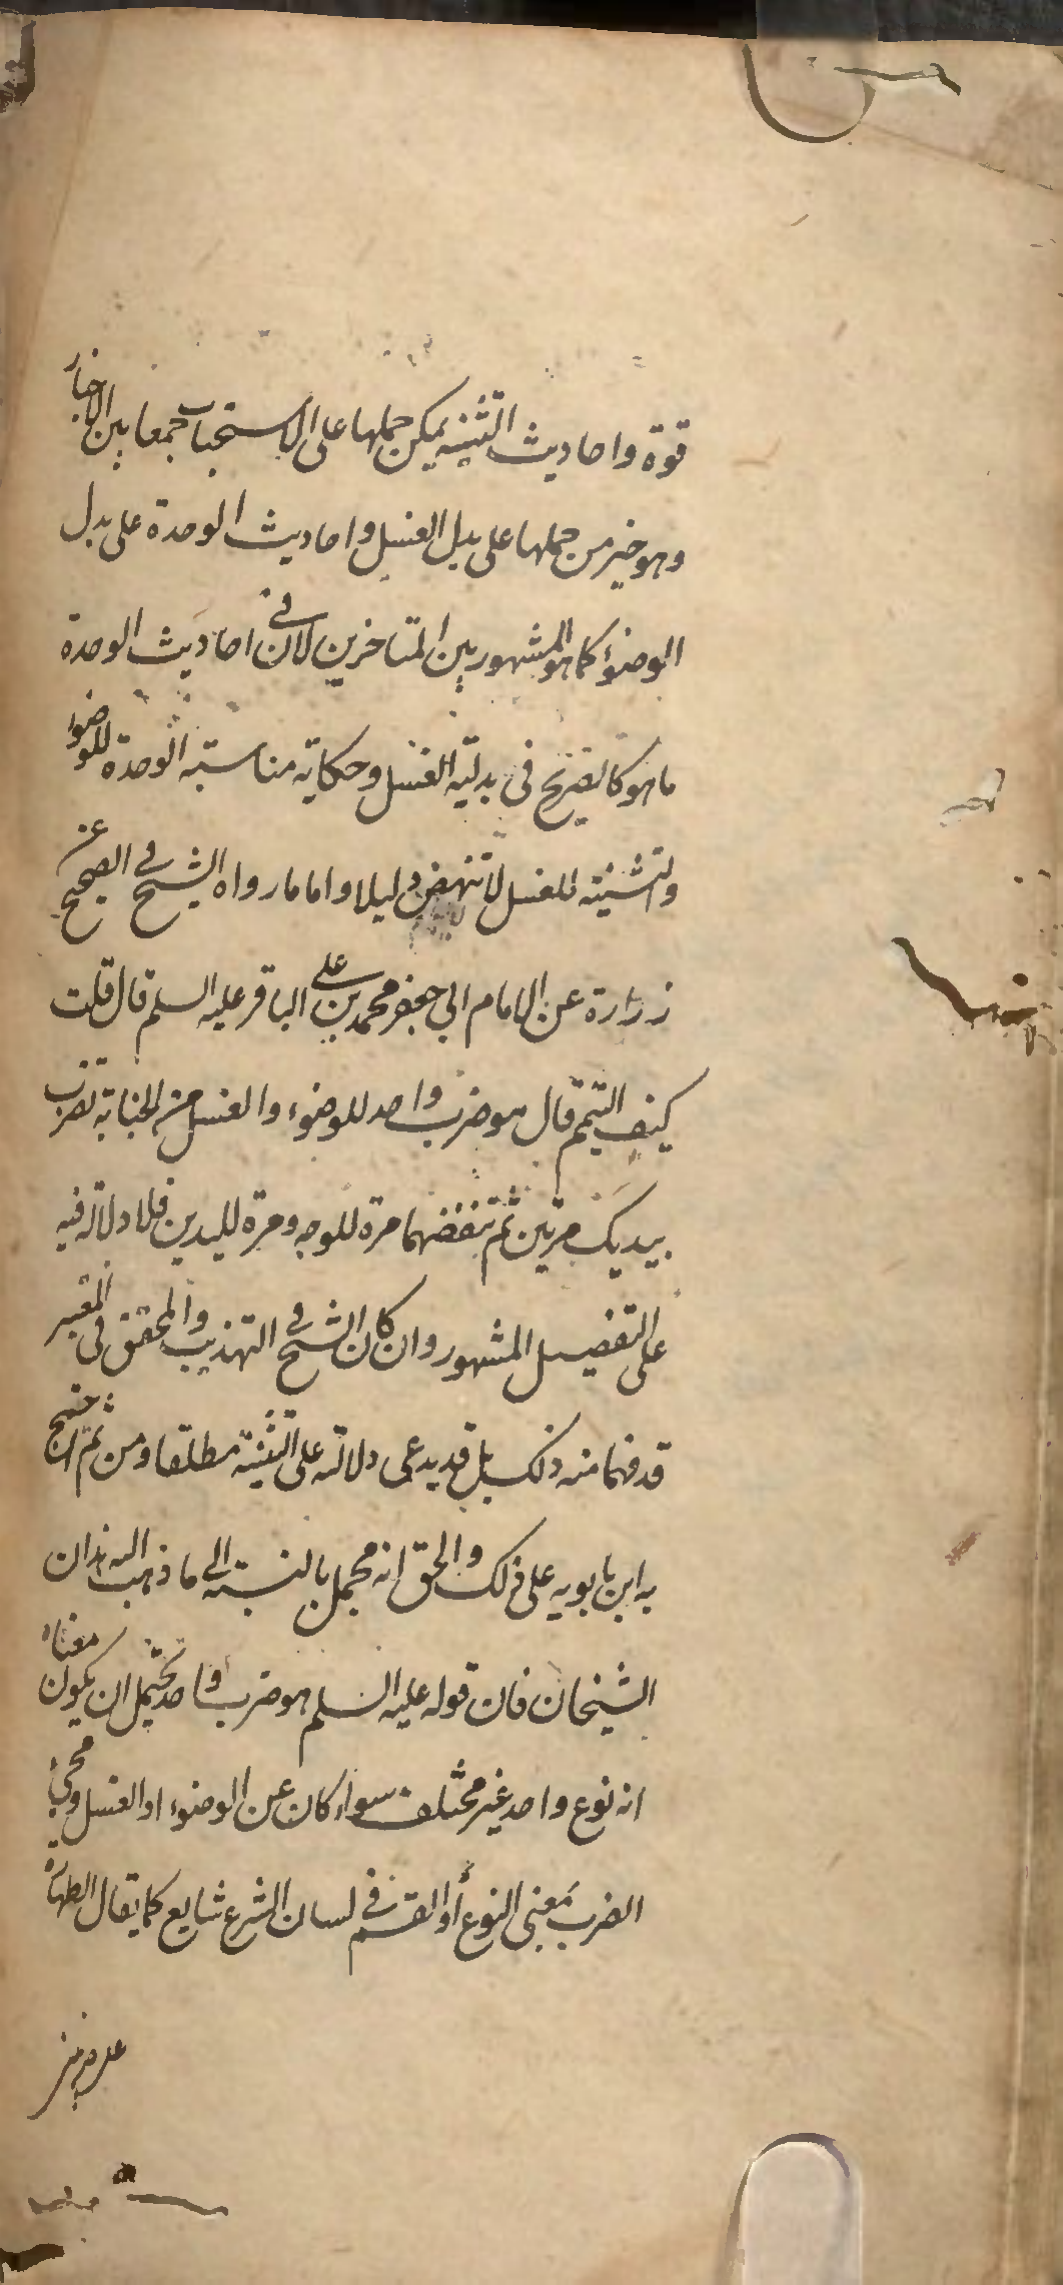 قوة واحاديث التثنيه يمكن حملها على الاستحباب جمعا بين الاخبار
وهو خير من حملها على بدل الغسل واحاديث الوحدة على بدل
الوضوء كما هو المشهور بين المتاخرين لان في احاديث الوحدة
ما هو كالصريح في بدلية الغسل وحكاية مناسبة الوحدة للوضوء
والتثنيته للغسل لا تنهض دليلا واما ما رواه الشيخ في الصحيح عن
زرارة عن الامام ابي جعفر محمد بن علي الباقر عليه السلم قال قلت
كيف التيمم قال هو ضرب واحد للوضوء والغسل من الجنابة تضرب
بيديك مرتين ثم تنفضهما مرة للوجه ومرة لليدين فلا دلالة فيه
على التفصيل المشهور وان كان الشيخ في التهذيب والمحقق في المعتبر
قد فهما منه ذلك بل قد يدعى دلالته على التثنية مطلقا ومن ثم احتج
به ابن بابويه على ذلك والحق انه مجمل بالنسبة الى ما ذهب اليه هذان
الشيخان فان قوله عليه السلم هو ضرب واحد يحتمل ان يكون معناه
انه نوع واحد غير مختلف سواء كان عن الوضوء او الغسل ومجئ
الضرب بمعنى النوع او القسم في لسان الشرع شايع كما يقال الطهارة
على ضربين